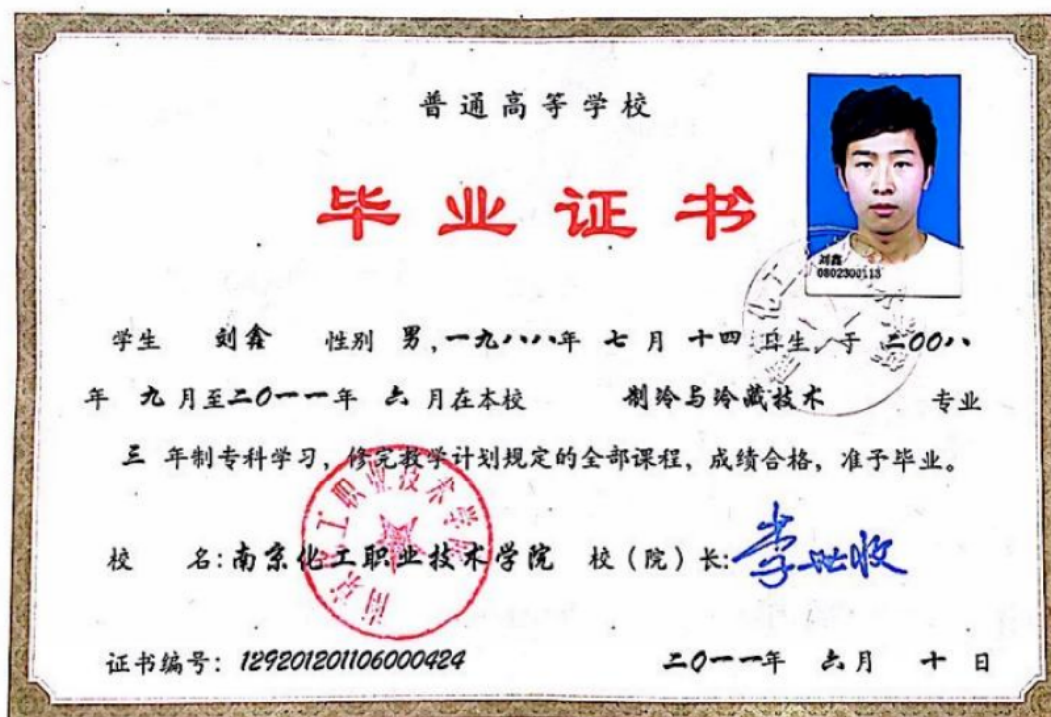 普通高等学校
毕业证书
刘鑫
0802300113
学生 刘鑫 性别 男,一九八八年 七 月 十四 日生,于 二00八
年 九 月至二0一一年 六 月在本校 制冷与冷藏技术 专业
三 年制专科学习,修完教学计划规定的全部课程,成绩合格,准予毕业。
校 名:南京化工职业技术学院 校(院)长:
南京化工职业技术学院
证书编号:129201201106000424 二0一一年 六月 十 日